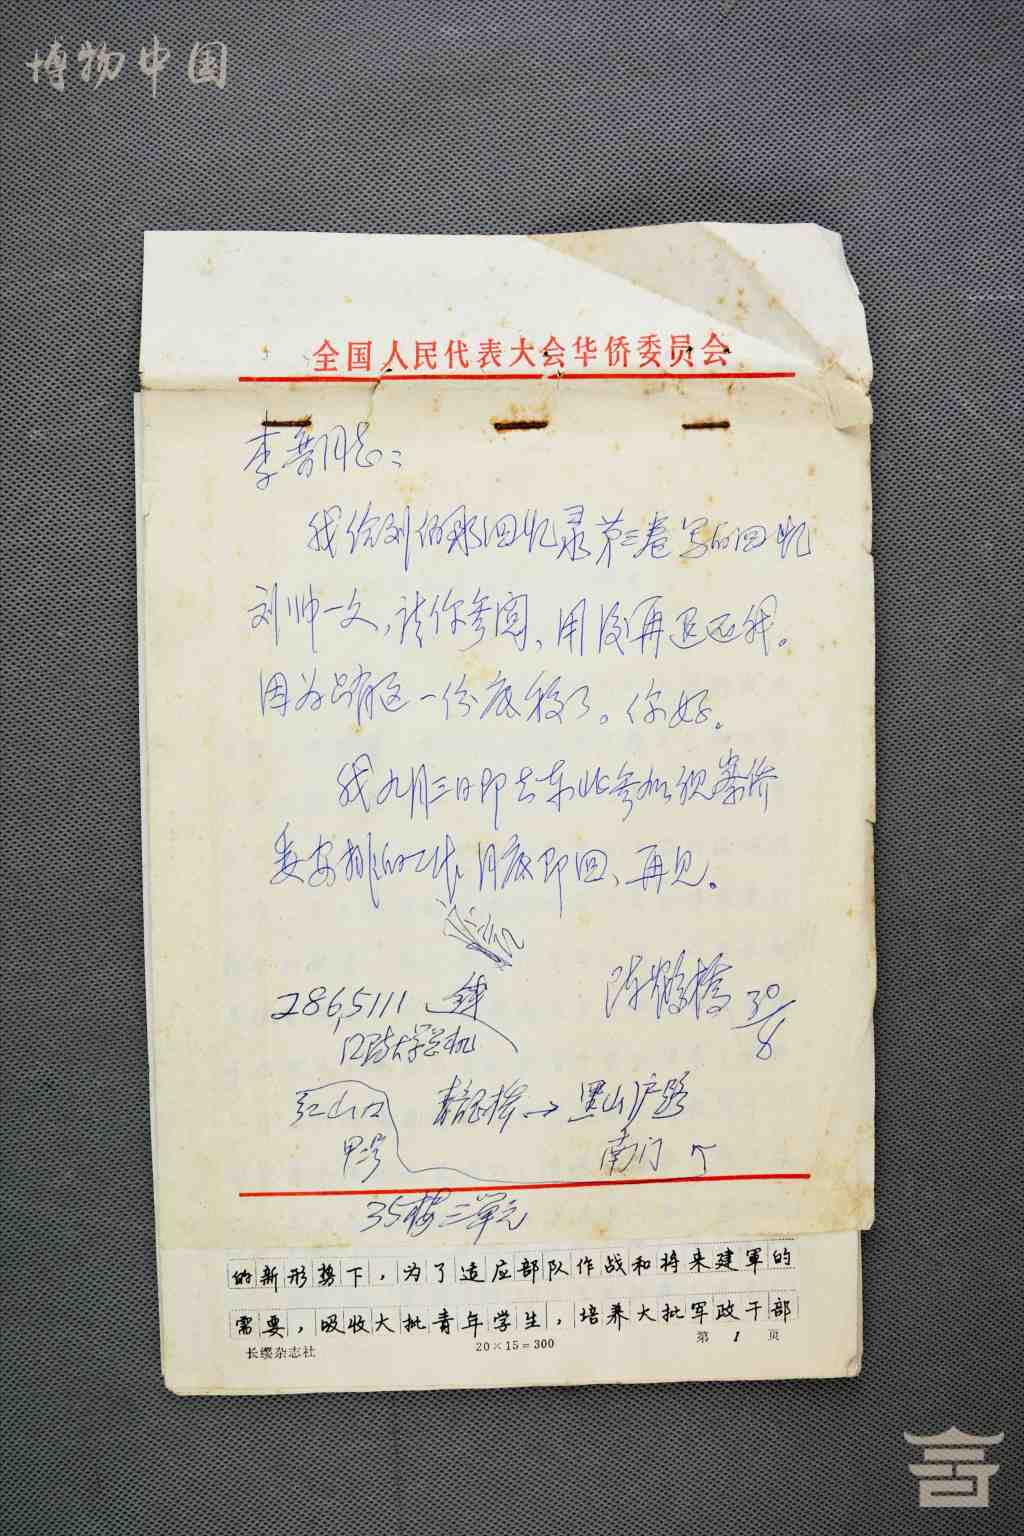 博物中国
全国人民代表大会华侨委员会
李普同志：
我给刘伯承回忆录第三卷写的回忆
刘帅一文，请你参阅、用后再退还我。
因为只有这一份底稿了。你好。
我九月三日即去东北参加视察侨
委安排的工作，月底即回、再见。
陈鹤桥 30/8
2865111 转
国防大学总机
红山口
甲3号
青龙桥→黑山户路
南门
35楼三单元
的新形势下，为了适应部队作战和将来建軍的
需要，吸收大批青年学生，培养大批军政干部
长缨杂志社
20×15=300
第 1 页